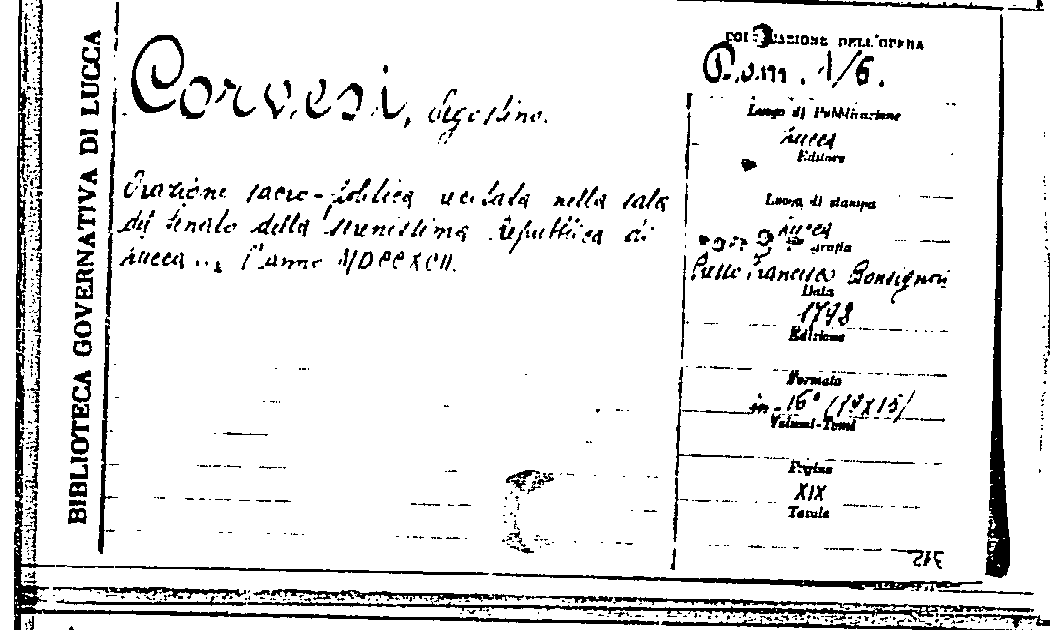 BIBLIOTECA GOVERNATIVA DI LUCCA
Corvesi, Agostino.
Orazione sacro-politica recitata nella sala
del Senato della Serenissima Repubblica di
Lucca l'anno MDCCXCII.
COLLOCAZIONE DELL'OPERA
Luogo di Pubblicazione
Lucca
Editore
Luogo di stampa
Lucca
Presso Francesco Bonsignori
Data
Edizione
Formato
in-16°
Volumi-Tomi
Pagine
XIX
Tavole